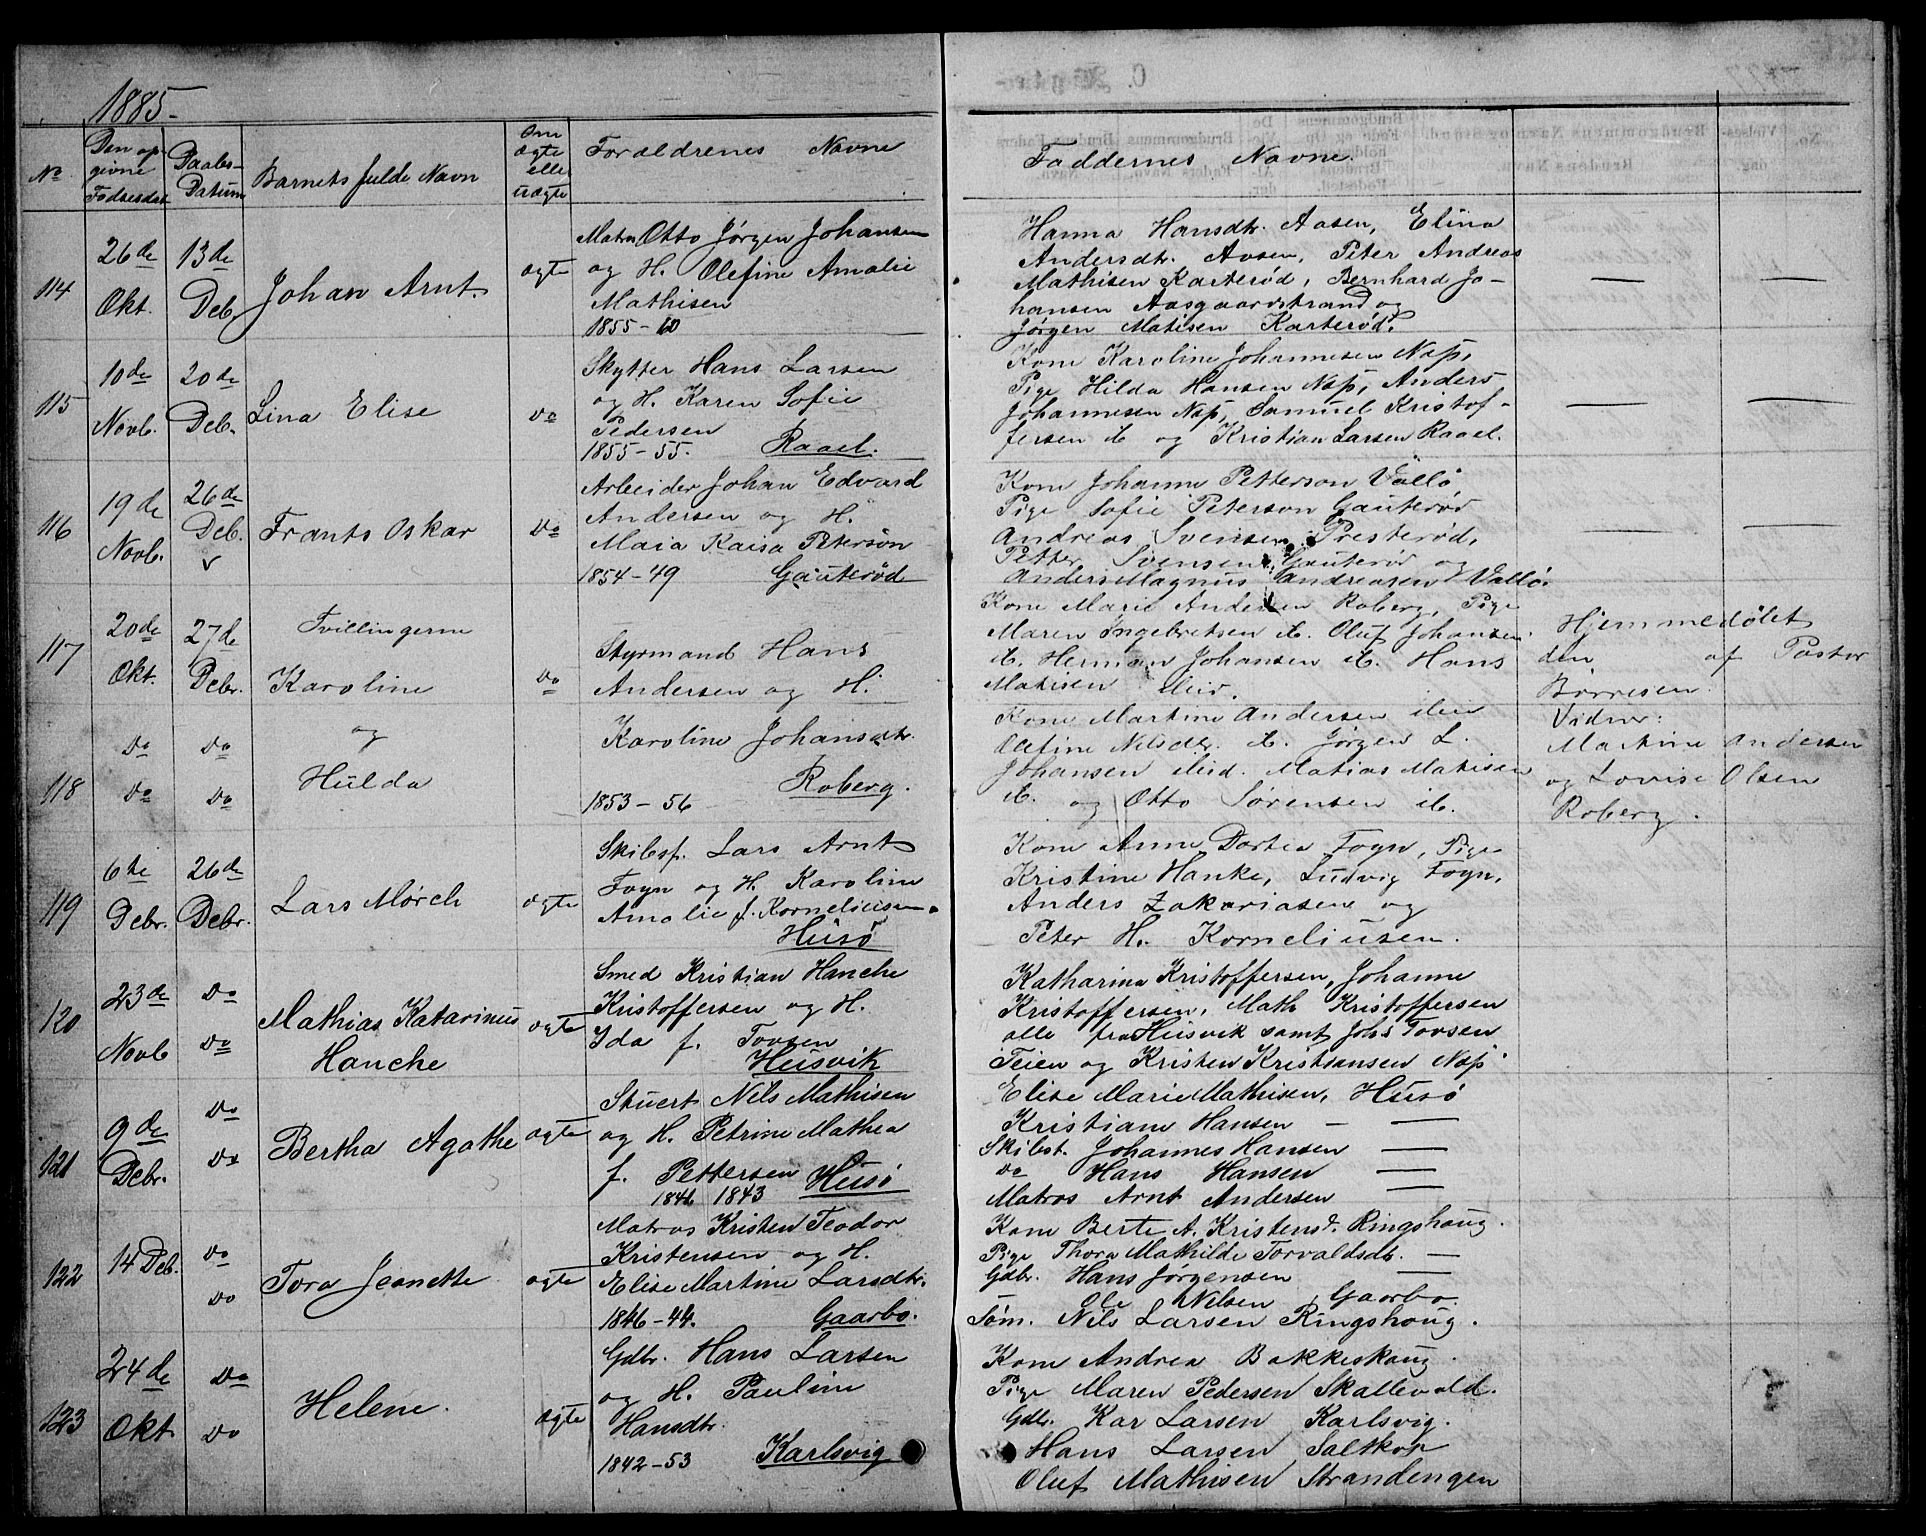 1885-
No
Den op-
givne
Fødselsdat
Daabs-
Datum
Barnets fulde Navn
Om
ægte
elle
uægte
Forældrenes Navne
Faddernes Navne.
114
26de
Okt.
13de
Deb.
Johan Arnt.
ægte
Matr. Otto Jørgen Johansen
og H. Olefine Amalie
Mathisen
1855-60
Hanna Hansdtr. Aasen, Elina
Andersdtr. Aasen, Peter Andreas
Mathisen Karterød, Bernhard Jo-
hansen Aasgaardstrand og
Jørgen Matisen Karterød.
115
10de
Novb.
20de
Deb.
Lina Elise
do
Skytter Hans Larsen
og H. Karen Sofie
Pedersen
1855-55. Raael.
Kone Karoline Johannesen Næs,
Pige Hilda Hansen Næs, Anders
Johannesen Næs, Samuel Kristof-
fersen ib. og Kristian Larsen Raael.
116
19de
Novb.
26de
Deb.
Frants Oskar
do
Arbeider Johan Edvard
Andersen og H.
Maia Kaisa Petersøn
1854-49 Gauterød
Kone Johanne Petterson Vallø
Pige Sofie Peterson Gauterød
Andreas Svensen Presterød,
Petter Svensen Gauterød og
Anders Magnus Andreasen Vallø.
117
20de
Okt.
27de
Debr.
Tvillingerne
Karoline
og
do
Styrmand Hans
Andersen og H.
Karoline Johansdtr.
Roberg.
1853-56
Kone Marie Andersen Roberg, Pige
Maren Ingebretsen ib. Oluf Johansen
ib. Herman Johansen ib. Hans
Matisen ibid.
Hjemmedøbt
den af Pastor
Børresen.
Vidner:
Martine Andersen
og Lovise Olsen
Roberg.
118
do
do
do
do
Hulda
Kone Martine Andersen ibid
Olefine Nilsdtr. ib. Jørgen L.
Johansen ibid. Matias Matisen
ib. og Otto Sørensen ib.
119
6te
Debr.
26de
Debr.
Lars Mørch
ægte
Skibsf. Lars Arnt
Foyn og H. Karoline
Amalie f. Korneliusen
Husø
Kone Anne Dortea Foyn, Pige
Kristine Hanke, Ludvig Foyn,
Anders Zakariasen og
Peter H. Korneliusen.
120
23de
Novb
do
do
Mathias Katarinus
Hanche
ægte
Smed Kristian Hanche
Kristoffersen og H.
Ida f. Tovsen
Husvik
Katharina Kristoffersen, Johanne
Kristoffersen, Math Kristoffersen
alle fra Husvik samt Johs Tovsen
Teien og Kristen Kristiansen Næs
121
9de
Debr.
do
do
Bertha Agathe
ægte
Stuert Nils Mathisen
og H. Petrine Mathea
f. Pettersen Husø
1841 1843
Elise Marie Mathisen, Husø
Kristiane Hansen —
Skibst. Johannes Hansen —
do Hans Hansen —
Matros Arnt Andersen —
122
14 Deb.
do
do
Tora Jeanette
ægte
Matros Kristen Teodor
Kristensen og H.
Elise Martine Larsdtr.
1846-44. Gaarbo.
Kone Berte A. Kristensd. Ringshaug.
Pige Thora Mathilde Torvaldsdt. —
Gdbr. Hans Jørgensen —
— Ole Nilsen Gaarbo.
Tøm. Nils Larsen Ringshaug.
123
24de
Okt
do
do
Helene.
ægte
Gdbr. Hans Larsen
og H. Pauline
Hansdtr.
1842-53 Karlsvig
Kone Andrea Bakkeskaug.
Pige Maren Pedersen Skallevold.
Gdb. Kar Larsen Karlsvig.
Hans Larsen Saltkop
Oluf Mathisen Strandengen